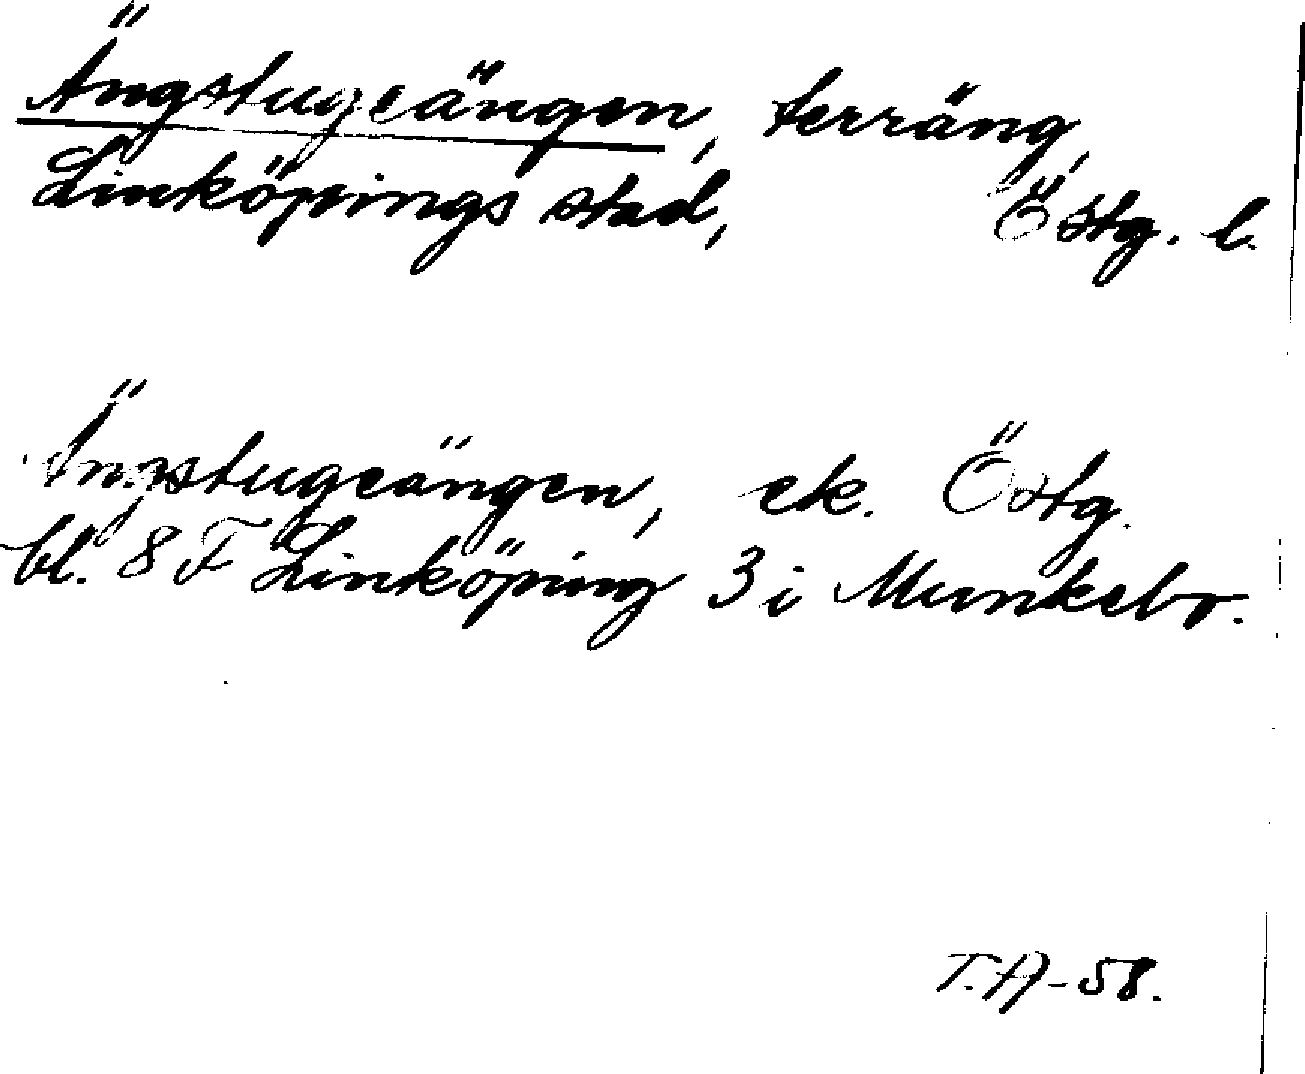 Ängstugeängen, terräng,
Linköpings stad, Östg. l.
Ängstugeängen, ek. Östg.
bl. 8 F Linköping 3 i Munkebo.
T.A-58.